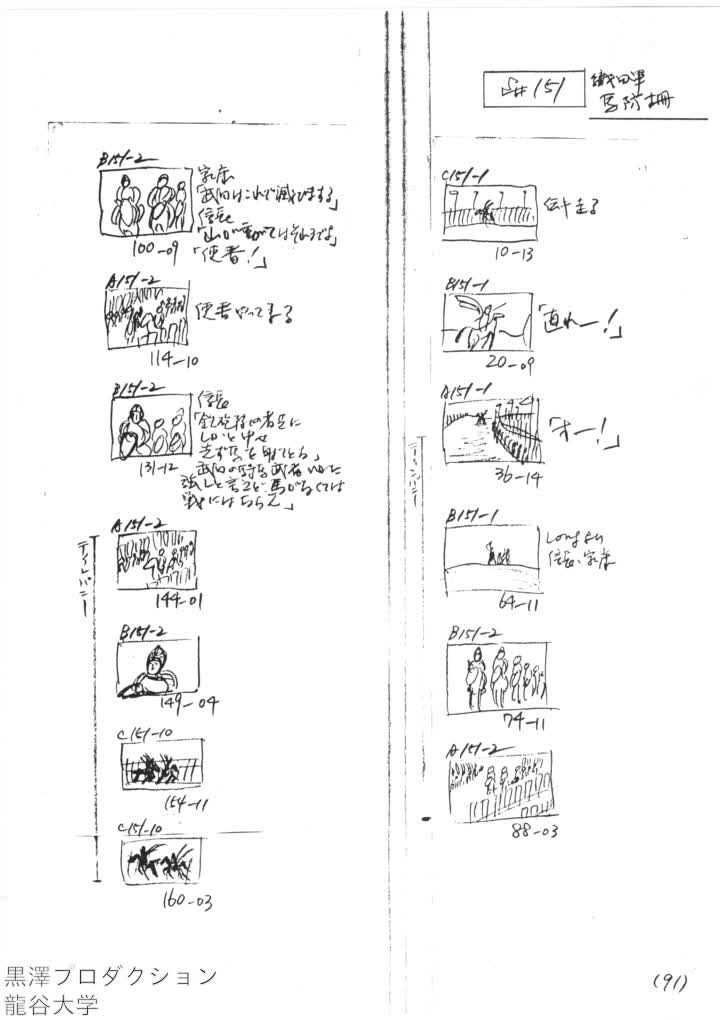 S#151
織田軍
馬防柵
C151-1
伝令走る
10-13
B151-1
「直れー!」
20-09
A151-1
「オー!」
36-14
B151-1
Long より
信長、家康
64-11
B151-2
74-11
A151-2
88-03
B151-2
家康
「武田はこれで滅びまする」
信長
「山が動いてはそれまでよ」
「使番!」
100-09
A151-2
使番やってまる
114-10
B151-2
信長
「鉄砲組の者共に
しかと申せ
まず馬を射てとる」
武田の騎馬武者いかに
強しと言えど馬がなくては
戦にはならん」
131-12
A151-2
144-01
B151-2
149-04
C151-10
154-11
C151-10
160-03
ティンパニー
(91)
黒澤プロダクション
龍谷大学